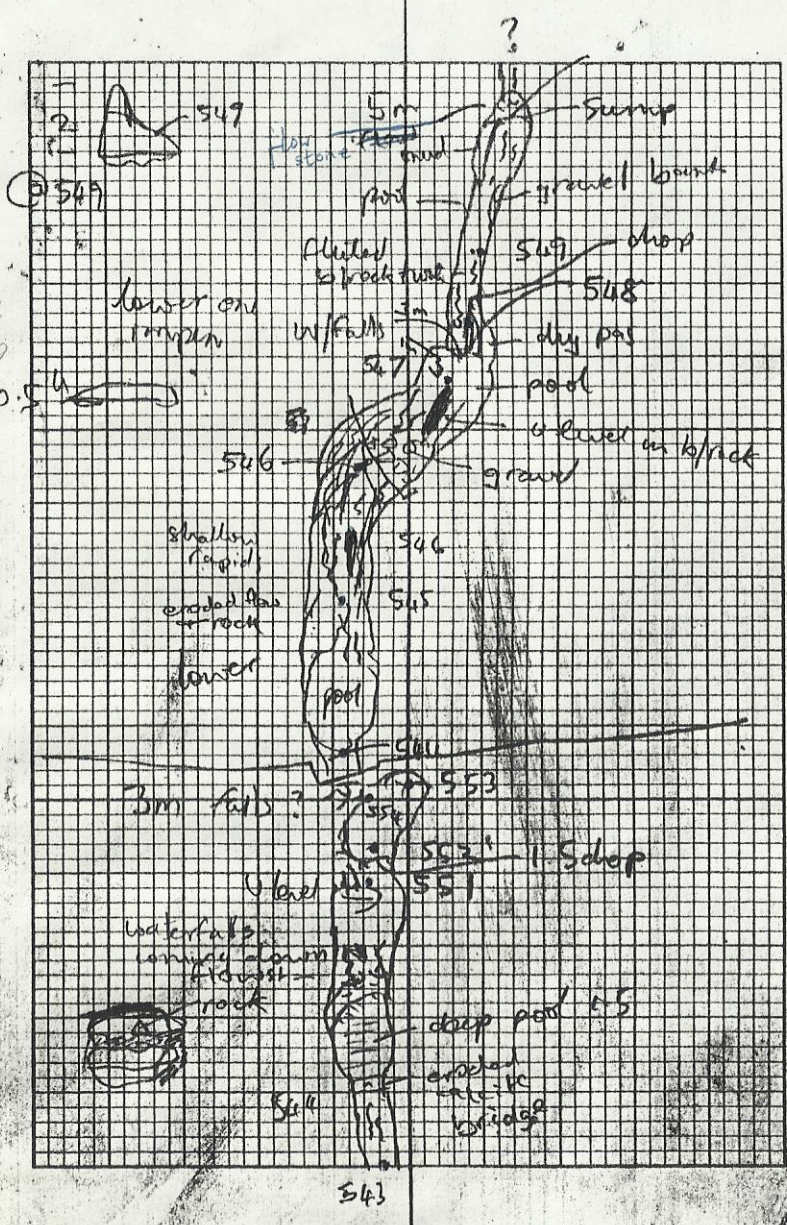 ?
549
5m
sump
flow
stone
mud
gravel bank
549
pool
fluted
549
drop
b/rock
548
lower on
W/falls
3m
dry pas
547
pool
0.5
u level in b/rock
546
gravel
shallow
rapids
546
545
eroded flow
rock
lower
pool
544
553
3m falls?
554
553
1.5 drop
U level
551
waterfalls
coming down
flowst
rock
deep pool
5
eroded
calcite
bridge
544
543